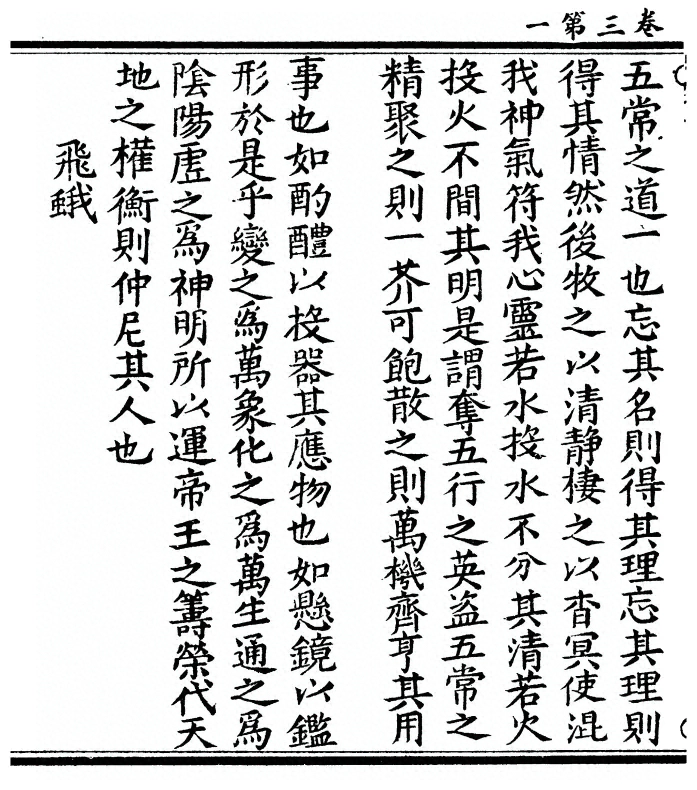 卷三第一
五常之道一也忘其名則得其理忘其理則
得其情然後牧之以清靜棲之以杳冥使混
我神氣符我心靈若水投水不分其清若火
投火不間其明是謂奪五行之英盗五常之
精聚之則一芥可飽散之則萬機齊亨其用
事也如酌醴以投器其應物也如懸鏡以鑑
形於是乎變之為萬象化之為萬生通之為
陰陽虛之為神明所以運帝王之籌策代天
地之權衡則仲尼其人也
飛蛾